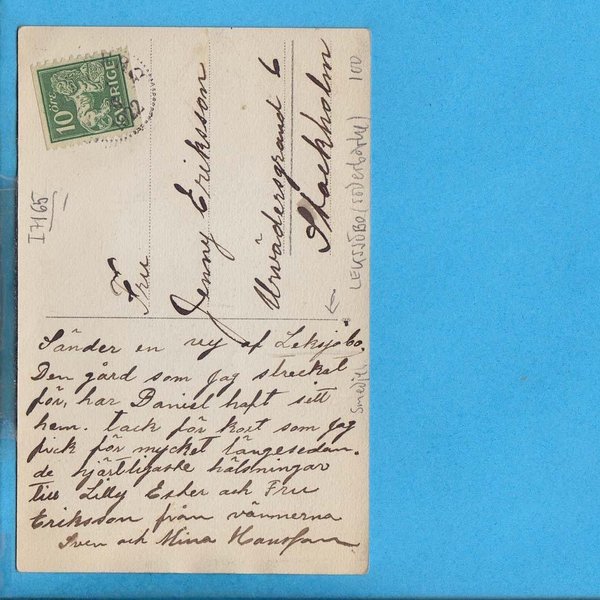 10 öre
SVERIGE
22
I7165
Fru
Jenny Eriksson
Urvädersgränd 6
Stockholm
LEKSJÖBO (SÖDERBÄRKE)
100
Smedj.
Sänder en vy af Leksjöbo.
Den gård som Jag strecket
för, har Daniel haft sitt
hem. tack för kort som Jag
fick för mycket längesedan.
de hjärtligaste hälsningar
till Lilly Ester och Fru
Eriksson från vännerna
Sven och Mina Hansson